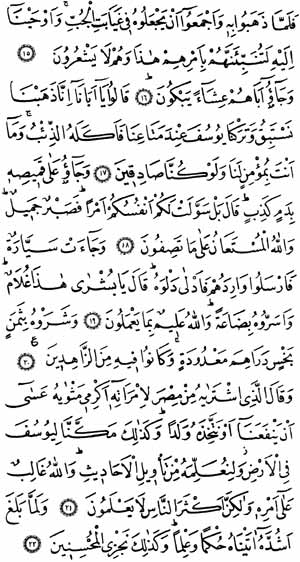 فَلَمَّا ذَهَبُوا بِهٖ وَاَجْمَعُوٓا اَنْ يَجْعَلُوهُ فٖى غَيَابَتِ الْجُبِّۚ وَاَوْحَيْنَٓا
اِلَيْهِ لَتُنَبِّئَنَّهُمْ بِاَمْرِهِمْ هٰذَا وَهُمْ لَا يَشْعُرُونَ ﴿١٥﴾
وَجَٓاؤُٓ اَبَاهُمْ عِشَٓاءً يَبْكُونَؕ ﴿١٦﴾ قَالُوا يَٓا اَبَانَٓا اِنَّا ذَهَبْنَا
نَسْتَبِقُ وَتَرَكْنَا يُوسُفَ عِنْدَ مَتَاعِنَا فَاَكَلَهُ الذِّئْبُۚ وَمَٓا
اَنْتَ بِمُؤْمِنٍ لَنَا وَلَوْ كُنَّا صَادِقٖينَ ﴿١٧﴾ وَجَٓاؤُ عَلٰى قَمٖيصِهٖ
بِدَمٍ كَذِبٍؕ قَالَ بَلْ سَوَّلَتْ لَكُمْ اَنْفُسُكُمْ اَمْرًاؕ فَصَبْرٌ جَمٖيلٌؕ
وَاللّٰهُ الْمُسْتَعَانُ عَلٰى مَا تَصِفُونَ ﴿١٨﴾ وَجَٓاءَتْ سَيَّارَةٌ
فَاَرْسَلُوا وَارِدَهُمْ فَاَدْلٰى دَلْوَهُؕ قَالَ يَا بُشْرٰى هٰذَا غُلَامٌؕ
وَاَسَرُّوهُ بِضَاعَةًؕ وَاللّٰهُ عَلٖيمٌ بِمَا يَعْمَلُونَ ﴿١٩﴾ وَشَرَوْهُ بِثَمَنٍ
بَخْسٍ دَرَاهِمَ مَعْدُودَةٍۚ وَكَانُوا فٖيهِ مِنَ الزَّاهِدٖينَ ﴿٢٠﴾ ع
وَقَالَ الَّذِى اشْتَرٰيهُ مِنْ مِصْرَ لِامْرَاَتِهٖٓ اَكْرِمٖى مَثْوٰيهُ عَسٰٓى
اَنْ يَنْفَعَنَٓا اَوْ نَتَّخِذَهُ وَلَدًاؕ وَكَذٰلِكَ مَكَّنَّا لِيُوسُفَ
فِى الْاَرْضِؗ وَلِنُعَلِّمَهُ مِنْ تَاْوٖيلِ الْاَحَادٖيثِؕ وَاللّٰهُ غَالِبٌ
عَلٰٓى اَمْرِهٖ وَلٰكِنَّ اَكْثَرَ النَّاسِ لَا يَعْلَمُونَ ﴿٢١﴾ وَلَمَّا بَلَغَ
اَشُدَّهُٓ اٰتَيْنَاهُ حُكْمًا وَعِلْمًاؕ وَكَذٰلِكَ نَجْزِى الْمُحْسِنٖينَ ﴿٢٢﴾